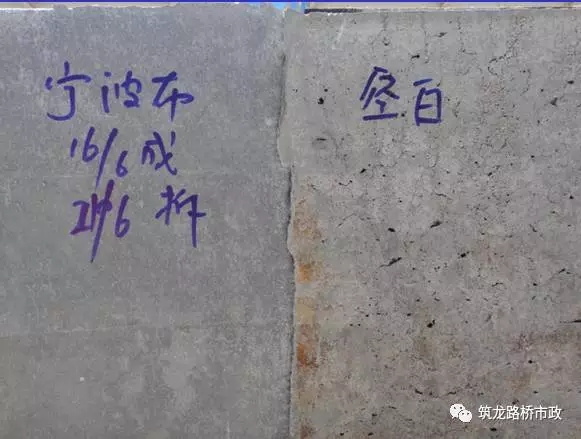 宁波布
16/6成
拆
空白
筑龙路桥市政